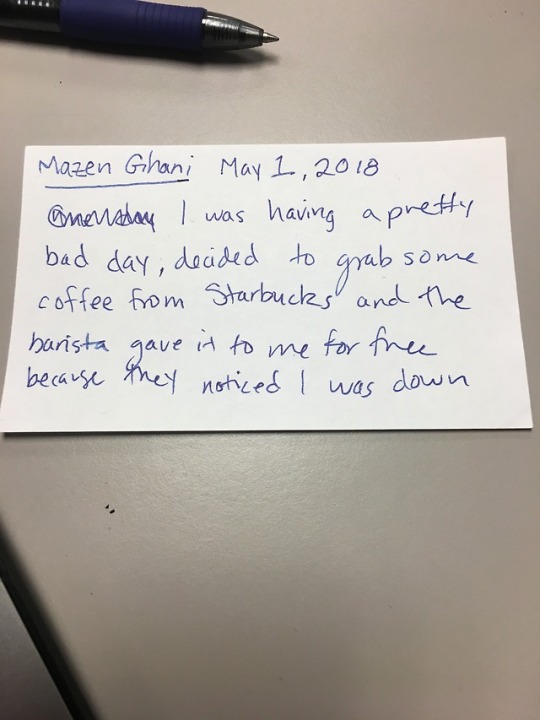 Mazen Ghani May 1, 2018
I was having a pretty
bad day, decided to grab some
coffee from Starbucks and the
barista gave it to me for free
because they noticed I was down